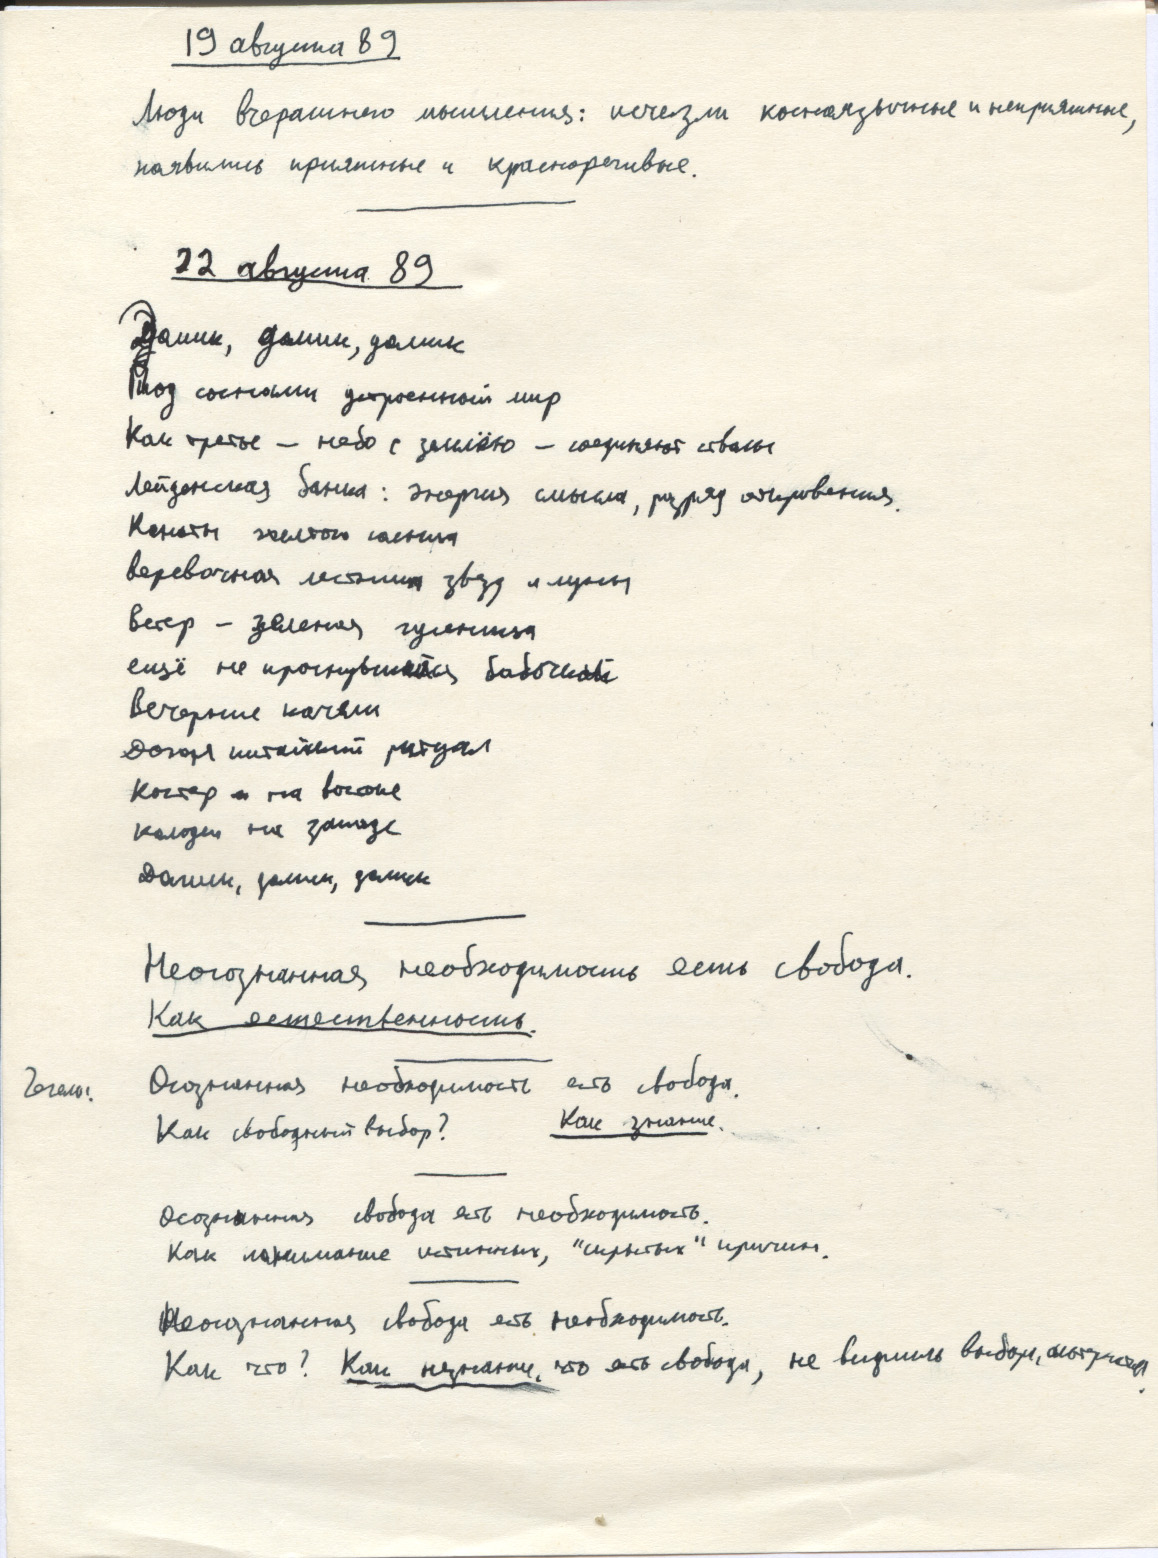 19 августа 89
Люди вчерашнего мышления: исчезли косноязычные и неприятные,
появились приятные и красноречивые.
22 августа 89
Домик, домик, домик
Под соснами устроенный мир
Как третье – небо с землёю – соединяют стволы
Лейденская банка: энергия смысла, разряд откровения.
Канаты желтого солнца
веревочная лестница звезд и луны
Ветер – зеленая гусеница
ещё не проснувшейся бабочкой
Вечерние качели
Догоря китайский ритуал
Костер на востоке
колодец на западе
Домик, домик, домик
Неосознанная необходимость есть свобода.
Как естественность.
Гегель: Осознанная необходимость есть свобода.
Как свободный выбор? Как знание.
Осознанная свобода есть необходимость.
Как понимание истинных, "скрытых" причин.
Неосознанная свобода есть необходимость.
Как что? Как незнание, что есть свобода, не видишь выбора, альтернатив.